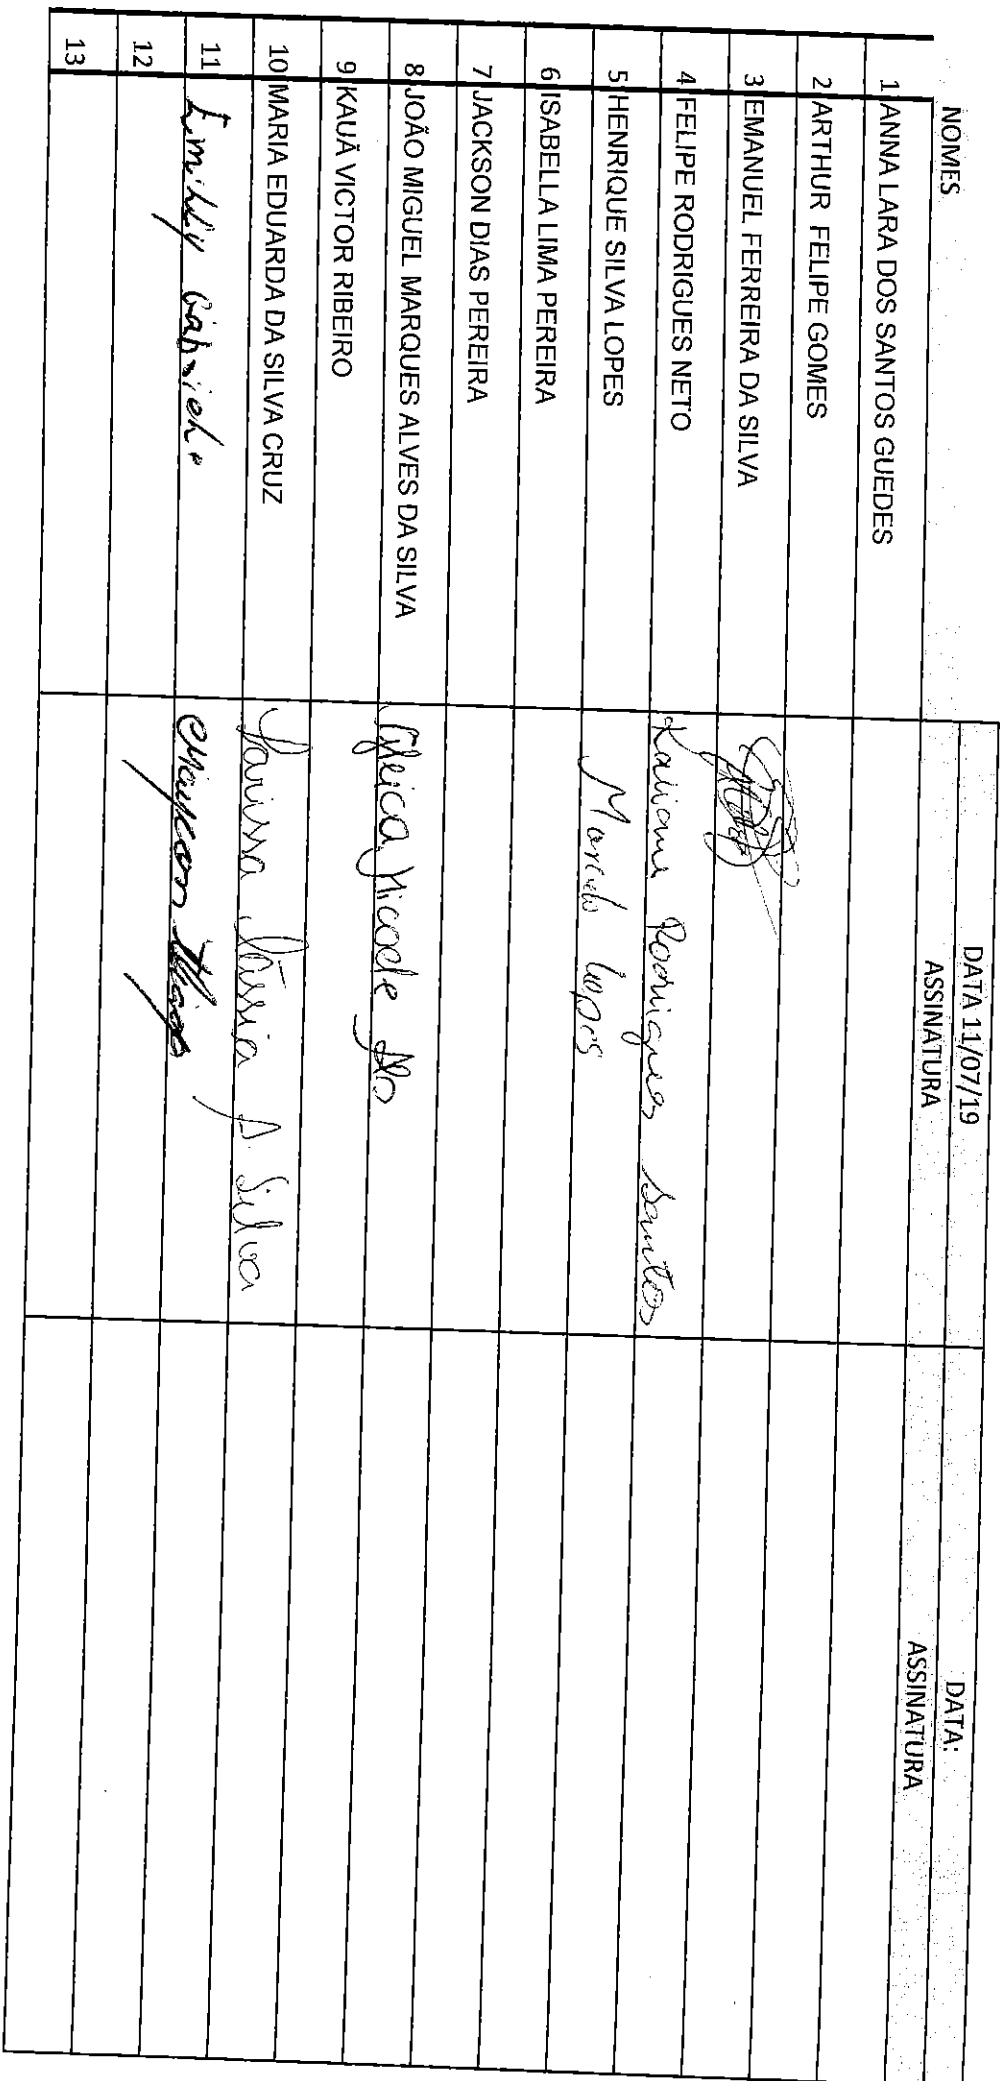 DATA 11/07/19 DATA:
NOMES ASSINATURA ASSINATURA
1 ANNA LARA DOS SANTOS GUEDES
2 ARTHUR FELIPE GOMES
3 EMANUEL FERREIRA DA SILVA
4 FELIPE RODRIGUES NETO Rodrigues Santos
5 HENRIQUE SILVA LOPES Marcelo Lopes
6 ISABELLA LIMA PEREIRA
7 JACKSON DIAS PEREIRA
8 JOÃO MIGUEL MARQUES ALVES DA SILVA Gleica
9 KAUÃ VICTOR RIBEIRO
10 MARIA EDUARDA DA SILVA CRUZ Larissa A Silva
11
12
13